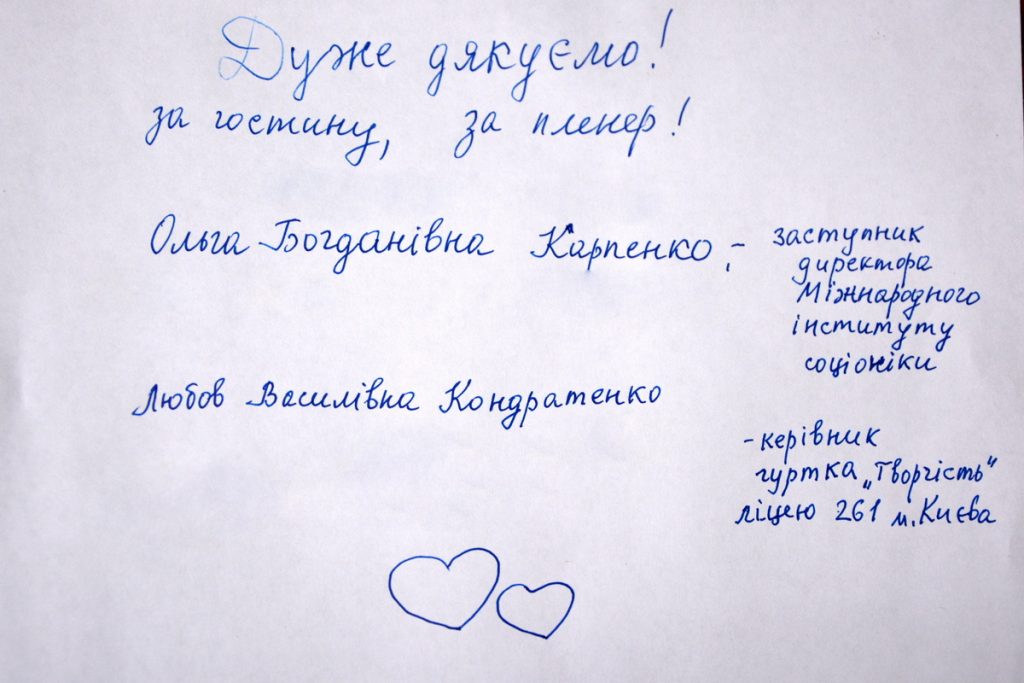 Дуже дякуємо!
за гостину, за пленер!
Ольга Богданівна Карпенко, -
заступник
директора
Міжнародного
інституту
соціоніки
Любов Василівна Кондратенко
- керівник
гуртка „Творчість“
ліцею 261 м. Києва